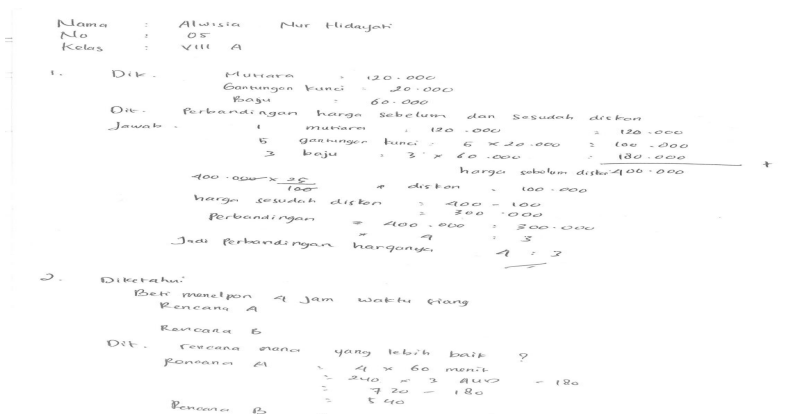 Nama : Alwisia Nur Hidayati
No : 05
Kelas : VIII A
1. Dik. Mutiara = 120.000
Gantungan kunci = 20.000
Baju = 60.000
Dit. Perbandingan harga sebelum dan sesudah diskon
Jawab. 1 mutiara : 120.000 = 120.000
5 gantungan kunci : 5 × 20.000 = 100.000
3 baju : 3 × 60.000 : 180.000 +
harga sebelum diskon 400.000
400.000 × 25/100 diskon = 100.000
harga sesudah diskon = 400 - 100
= 300.000
Perbandingan = 400.000 : 300.000
= 4 : 3
Jadi Perbandingan harganya 4 : 3
2. Diketahui
Beti menelpon 4 jam waktu siang
Rencana A
Rencana B
Dit. rencana mana yang lebih baik ?
Rencana A = 4 × 60 menit
= 240 × 3 - 180
= 720 - 180
= 540
Rencana B